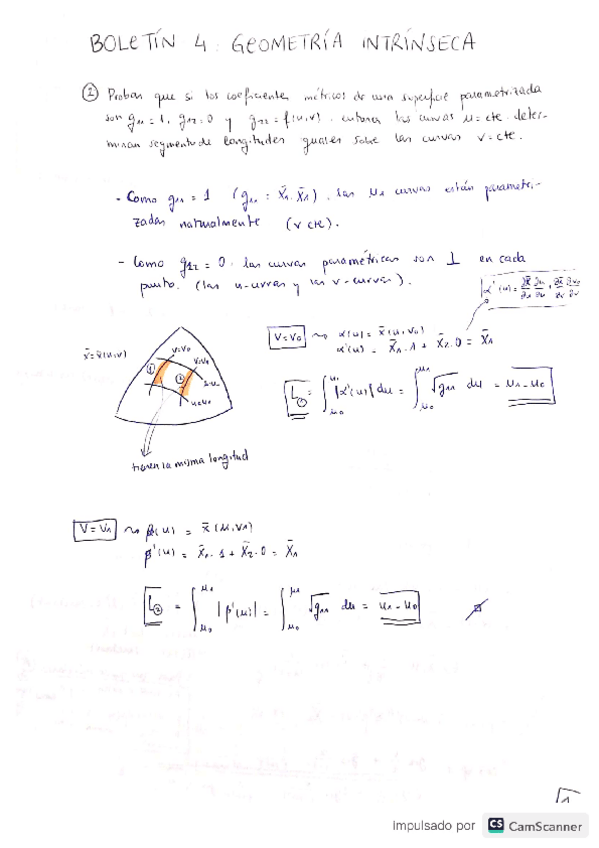 BOLETÍN 4: GEOMETRÍA INTRÍNSECA
① Probar que si los coeficientes métricos de una superficie parametrizada
son g₁₁ = 1, g₁₂ = 0 y g₂₂ = f(u,v), entonces las curvas u = cte. deter-
minan segmentos de longitudes iguales sobre las curvas v = cte.
- Como g₁₁ = 1 (g₁₁ = x̄₁·x̄₁), las u curvas están parametri-
zadas naturalmente (v cte).
- Como g₁₂ = 0, las curvas paramétricas son ⊥ en cada
punto. (las u-curvas y las v-curvas).
α'(u) = ∂x̄/∂u ∂u/∂u + ∂x̄/∂v ∂v₀/∂u
x̄ = x̄(u,v)
V=V₀
V=V₁
①
②
u=u₁
u=u₀
tienen la misma longitud
V=V₀ ⇝ α(u) = x̄(u,v₀)
α'(u) = x̄₁·1 + x̄₂·0 = x̄₁
L① = ∫ᵤ₀ᵘ¹ |α'(u)| du = ∫ᵤ₀ᵘ¹ √g₁₁ du = u₁ - u₀
V=V₁ ⇝ β(u) = x̄(u,v₁)
β'(u) = x̄₁·1 + x̄₂·0 = x̄₁
L② = ∫ᵤ₀ᵘ¹ |β'(u)| = ∫ᵤ₀ᵘ √g₁₁ du = u₁ - u₀
1
Impulsado por CS CamScanner